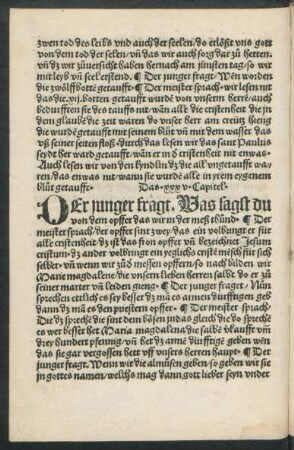 zwen tod des leibs vnd auch der seelen/do erlößt vns gott
von dem tod der selen/vn̄ das wir auch sorg dar zů hetten/
vn̄ dz wir zůuersicht haben hernach am jünsten tag/so wir
mit leyb vn̄ seel erstend· ¶ Der junger fragt· Wen worden
die zwölffbotte̅ getaufft· ¶ Der meister sprach·wir lesen nit
das die·xij·botten getaufft wurde̅ von vnserm herre̅/auch
bedurfften sie des tauffs nit·wan̄ alle die cristenheit die jn
dem glaube̅ die zeit waren do vnser herr am creütz hieng
die wurde̅ getaufft mit seinem blůt vn̄ mit dem wasser das
vß seiner seiten floß·durch das lesen wir das sant Paulus
seydt her ward getaufft·wan̄ er in d̅ cristenheit nit enwas·
Auch lesen wir von den kyndlin dz die all vngetaufft wa-
ren/das enwas nit/wann sie wurde̅ alle in jrem eygenem
blůt getaufft· Das·xxxv·Capitel·
DEr junger fragt· Was sagst du
von dem opffer das wir in der meß thůnd· ¶ Der
meister sprach/der opffer sint zwey/das ein volbringt er für
alle cristenheit/dz ist das fron opffer vn̄ bezeichnet Jesum
cristum/dz ander volbringt ein yeglichs crist mēsch für sich
selber·vn̄ wenn wir zů d̅ messen opffern/so nach bilden wir
Marie magdalene/die vnsern lieben herren salbt do er zů
seiner marter vn̄ leiden gieng· ¶ Der junger fraget/ Nun
sprechen ettlich es sey besser dz mā es armen dürfftigen geb
dann dz mā es den priestern opffer· ¶ Der meister sprach/
Die dz spreche̅ die sint dem bösen judas gleich der do sprech
es wer besser het Maria magdalena die salbe v̅kaufft vm̄
drey hundert pfennig/vn̄ het dz arme̅ dürfftige̅ geben wen
das sie gar vergossen hett vff vnsers herren haupt· ¶ Der
junger fraget· Wenn wir die almůsen geben/so geben wir sie
jn gottes namen/welchs mag dann gott lieber seyn vnder